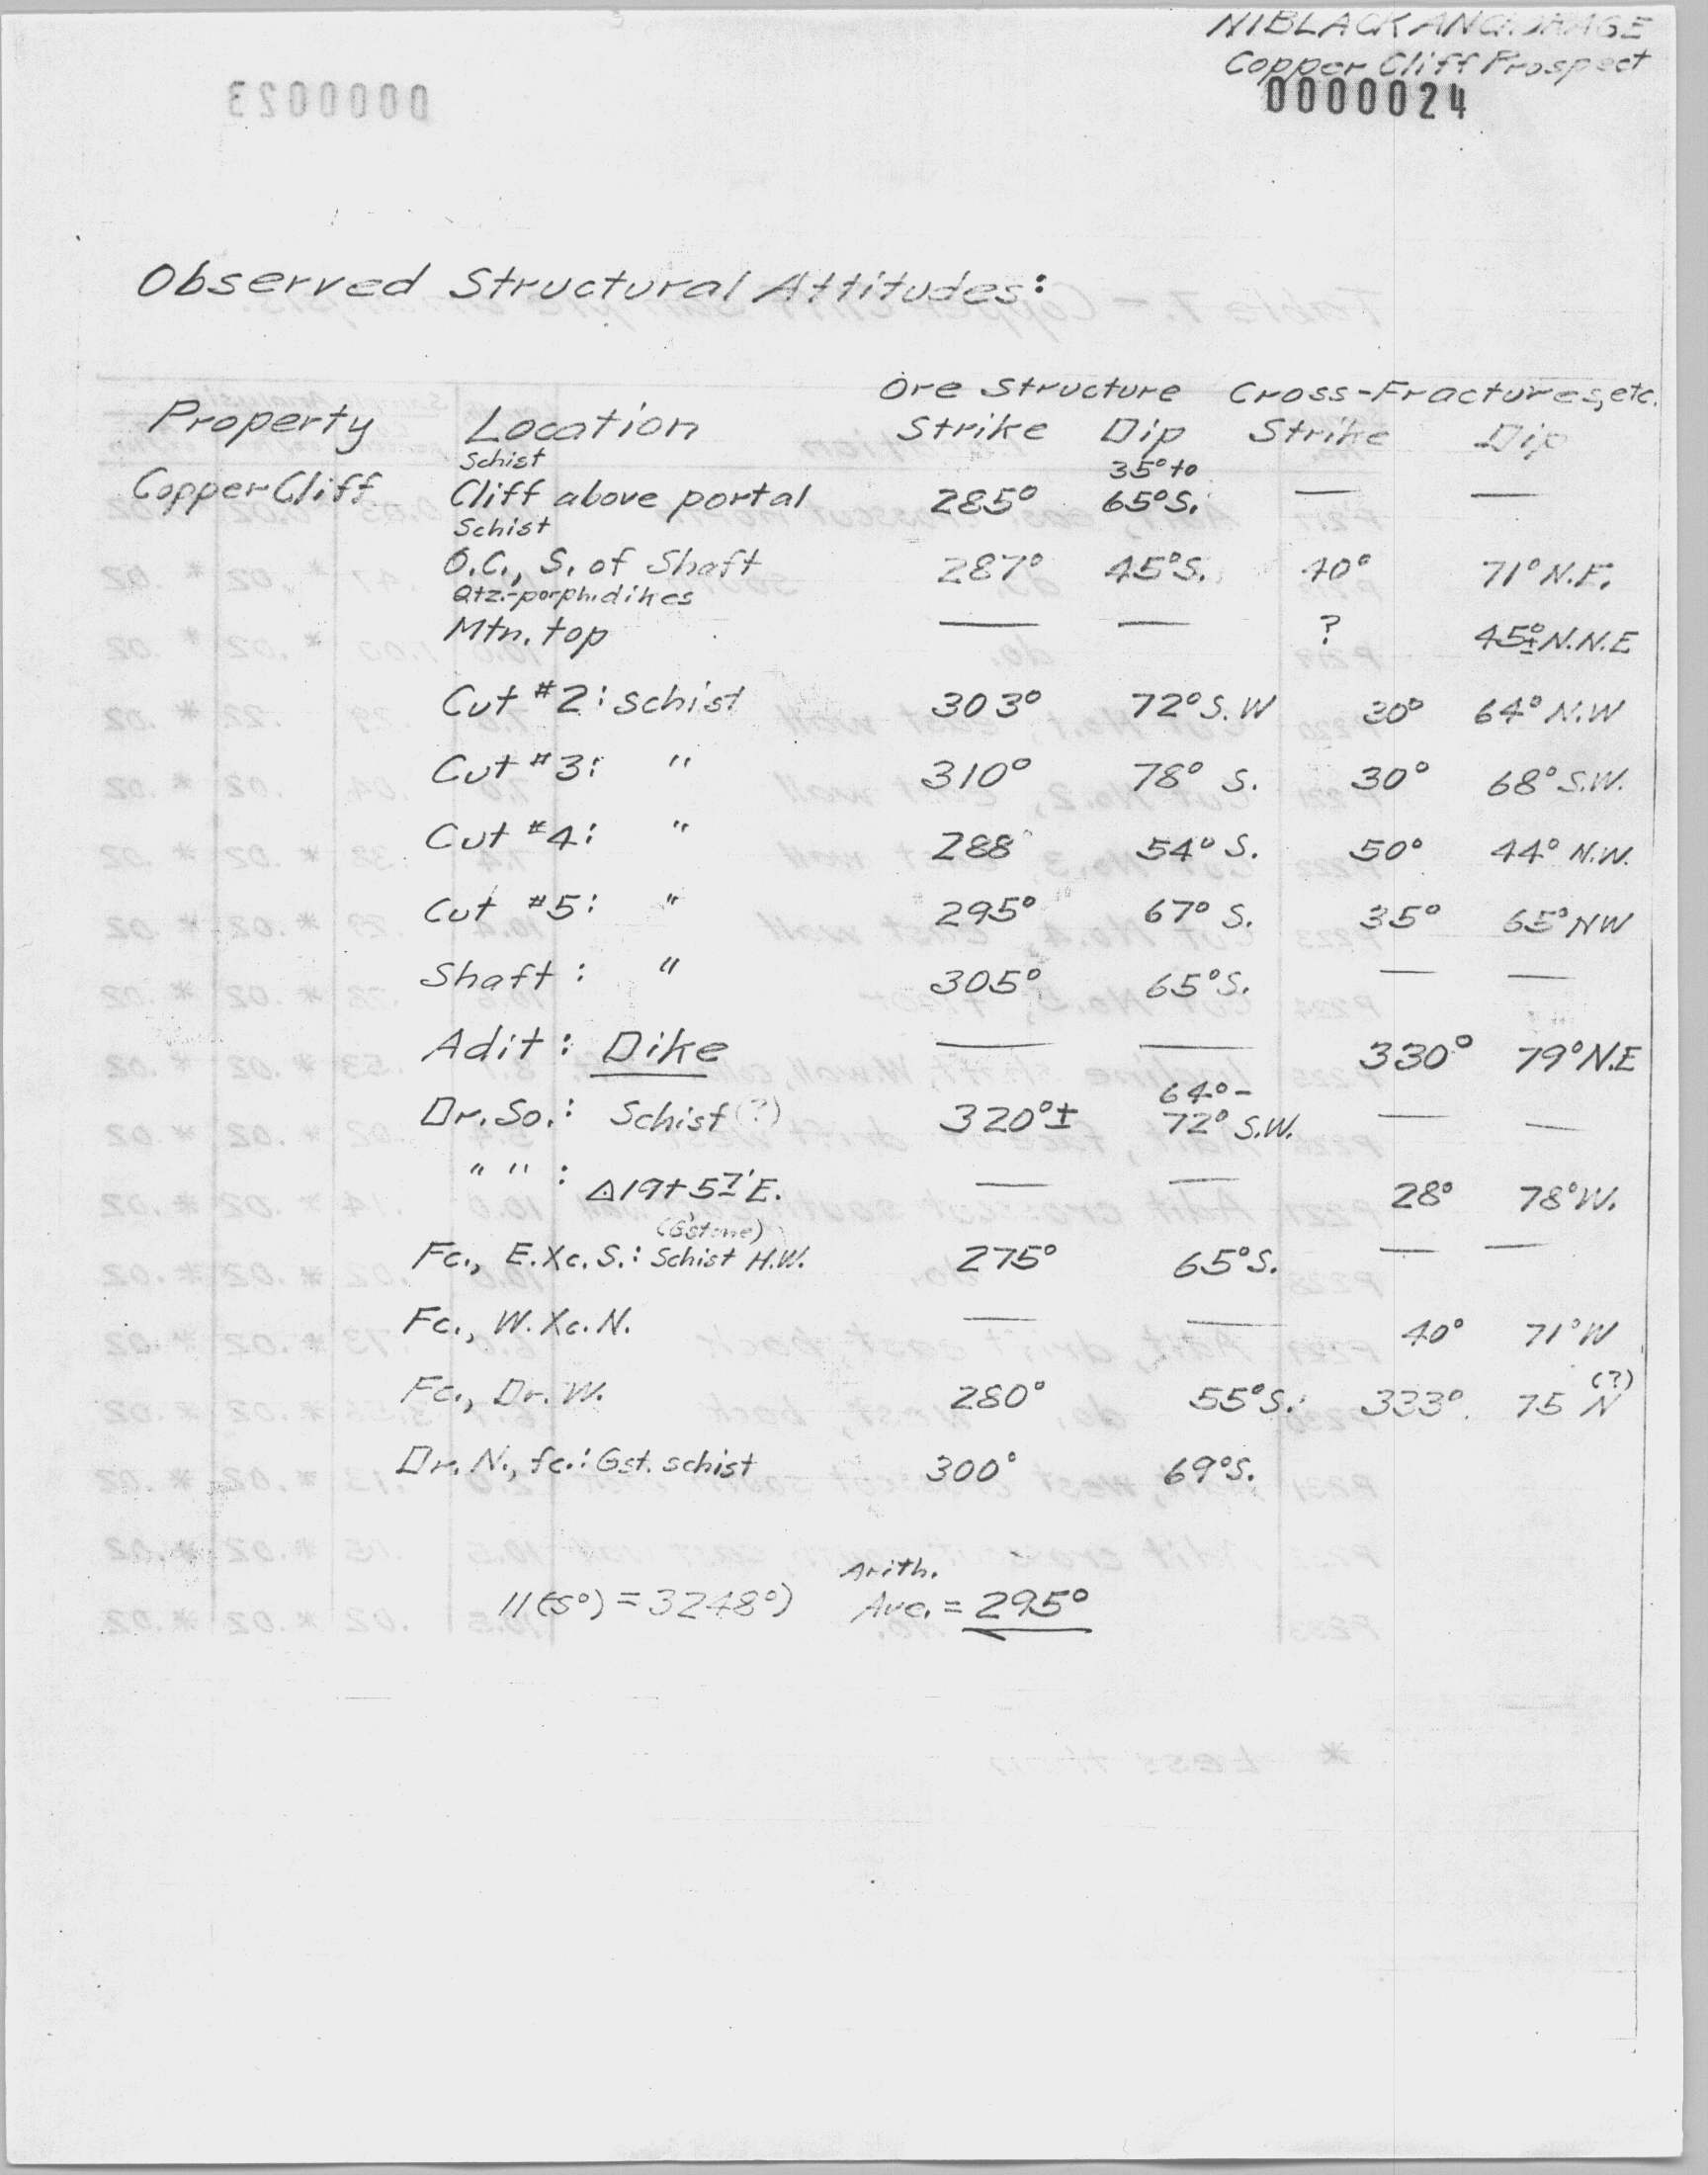 NIBLACK ANCHORAGE
Copper Cliff Prospect
0000024
Observed Structural Attitudes:
Ore Structure Cross-Fractures, etc.
Property Location Strike Dip Strike Dip
Schist 35° to
Copper Cliff Cliff above portal 285° 65°S. — —
Schist
O.C., S. of Shaft 287° 45°S. 40° 71° N.E.
Qtz.-porph. dikes
Mtn. top — — ? 45°± N.N.E
Cut #2: schist 303° 72° S.W 30° 64° N.W
Cut #3: " 310° 78° S. 30° 68° S.W.
Cut #4: " 288° 54° S. 50° 44° N.W.
Cut #5: " 295° 67° S. 35° 65° NW
Shaft: " 305° 65°S. — —
Adit: Dike — — 330° 79° N.E
64°-
Dr. So.: Schist (?) 320°± 72° S.W. — —
" " : △19+57' E. — — 28° 78° W.
(G'stone)
Fc., E. Xc. S.: Schist H.W. 275° 65°S. — —
Fc., W. Xc. N. — — 40° 71° W
(?)
Fc., Dr. W. 280° 55°S. 333° 75 N
Dr. N., fc.: Gst. schist 300° 69°S.
Arith.
11(s°) = 3248°) Ave. = 295°